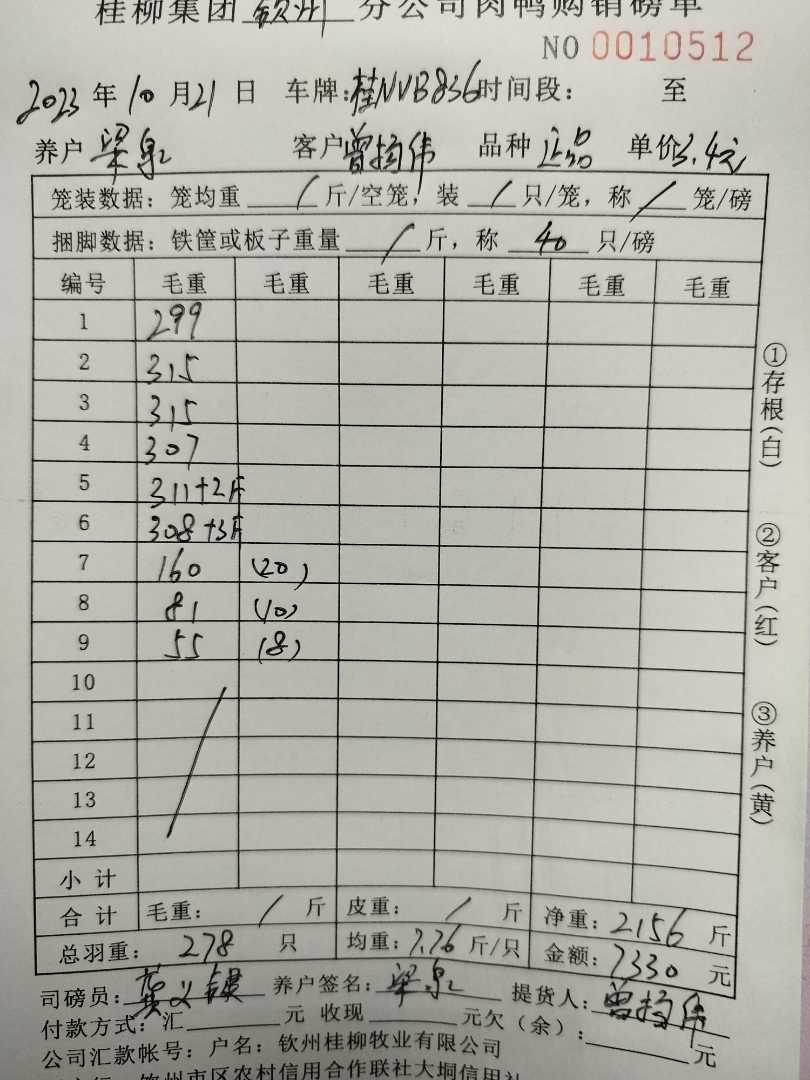 桂柳集团 钦州 分公司肉鸭购销磅单
NO 0010512
2023 年 10 月 21 日 车牌:桂NVB836 时间段: 至
养户 梁泉 客户 曾扬伟 品种 正品 单价 3.4元
笼装数据: 笼均重 / 斤/空笼, 装 / 只/笼, 称 / 笼/磅
捆脚数据: 铁筐或板子重量 / 斤, 称 40 只/磅
编号 毛重 毛重 毛重 毛重 毛重 毛重
1 299
2 315
3 315
4 307
5 311+2斤
6 308+3斤
7 160 (20)
8 81 (10)
9 55 (8)
10
11
12
13
14
小 计
合 计 毛重: / 斤 皮重: / 斤 净重: 2156 斤
总羽重: 278 只 均重: 7.76 斤/只 金额: 7330 元
司磅员: 养户签名: 梁泉 提货人: 曾扬伟
付款方式: 汇 元 收现 元欠(余): 元
公司汇款帐号: 户名: 钦州桂柳牧业有限公司
钦州市区农村信用合作联社大垌信用社
①存根(白)
②客户(红)
③养户(黄)